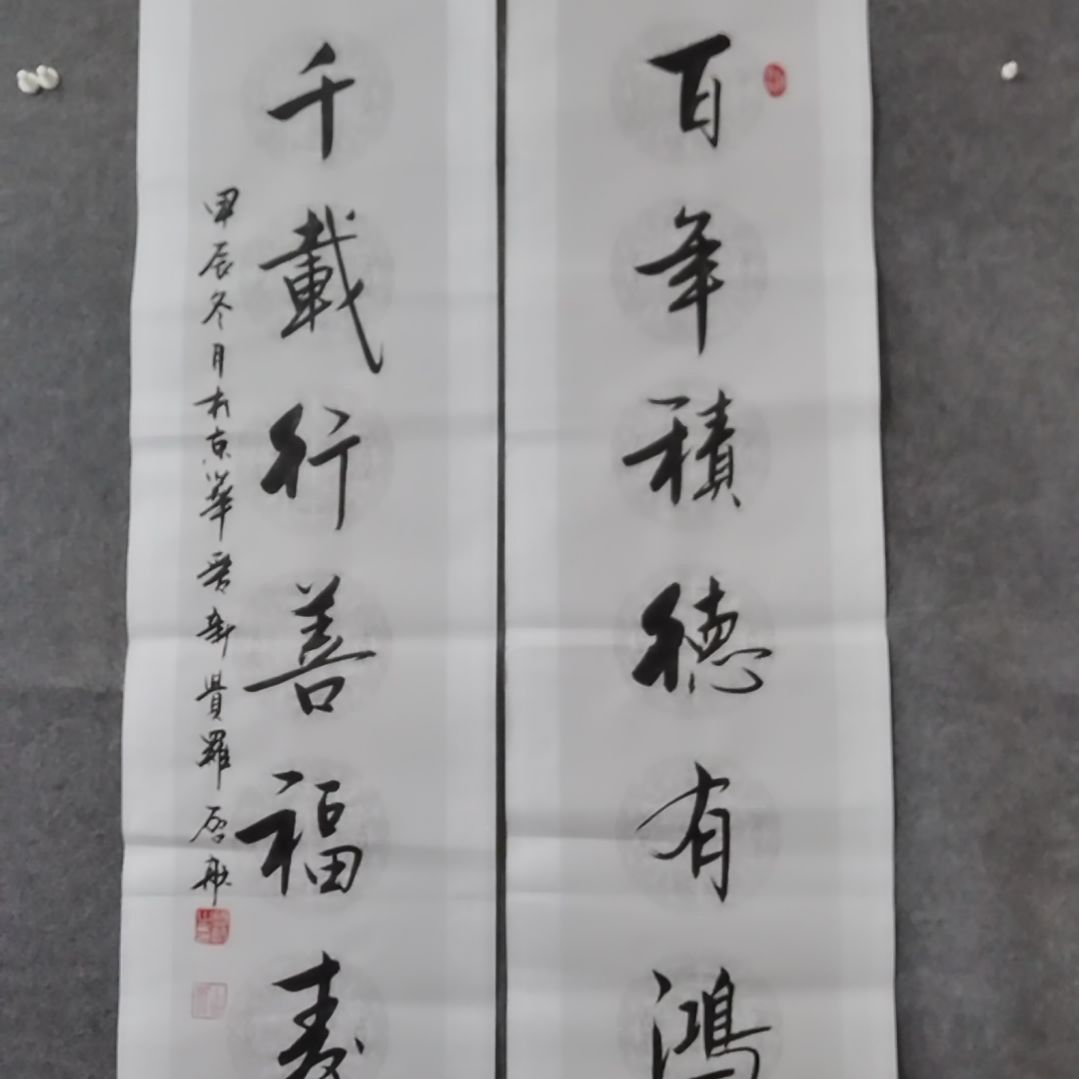 百年積德有鴻
千載行善福壽
甲辰冬月於京華晉新貴羅啓